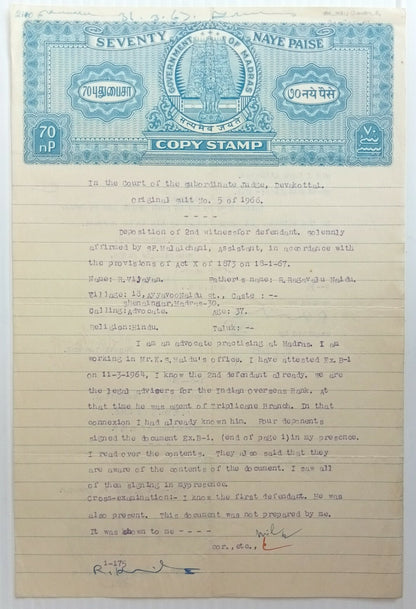 SEVENTY NAYE PAISE
GOVERNMENT OF MADRAS
70 புதுபைசா
७० नये पैसे
सत्यमेव जयते
70 nP
COPY STAMP
In the Court of the Subordinate Judge, Devakottai.
Original Suit No. 5 of 1966.
----
Deposition of 2nd witness for defendant. Solemnly
affirmed by SP.Malaichani, Assistant, in accordance with
the provisions of Act X of 1873 on 18-1-67.
Name: R.Vijayan. Father's name: R.Ragavalu Naidu.
Village: 18, AyyavooNaidu St., Caste : --
Shenainagar,Madras-30.
Calling:Advocate. Age: 37.
Religion:Hindu. Taluk: --
I am an advocate practising at Madras. I am
working in Mr.K.S.Naidu's office. I have attested Ex.B-1
on 11-3-1964, I know the 2nd defendant already. We are
the legal advisers for the Indian Overseas Bank. At
that time he was agent of Triplicane Branch. In that
connexion I had already known him. Four deponents
signed the document Ex.B-1. (end of page 1)in my presence.
I read over the contents. They also said that they
are aware of the contents of the document. I saw all
of them signing in mypresence.
Cross-examination:- I know the first defendant. He was
also present. This document was not prepared by me.
It was shown to me ----
Nil
cor., etc.,
1-175